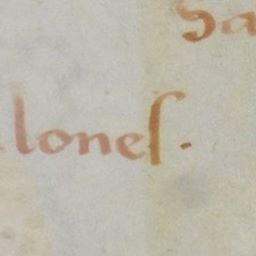 Sa
loneſ.